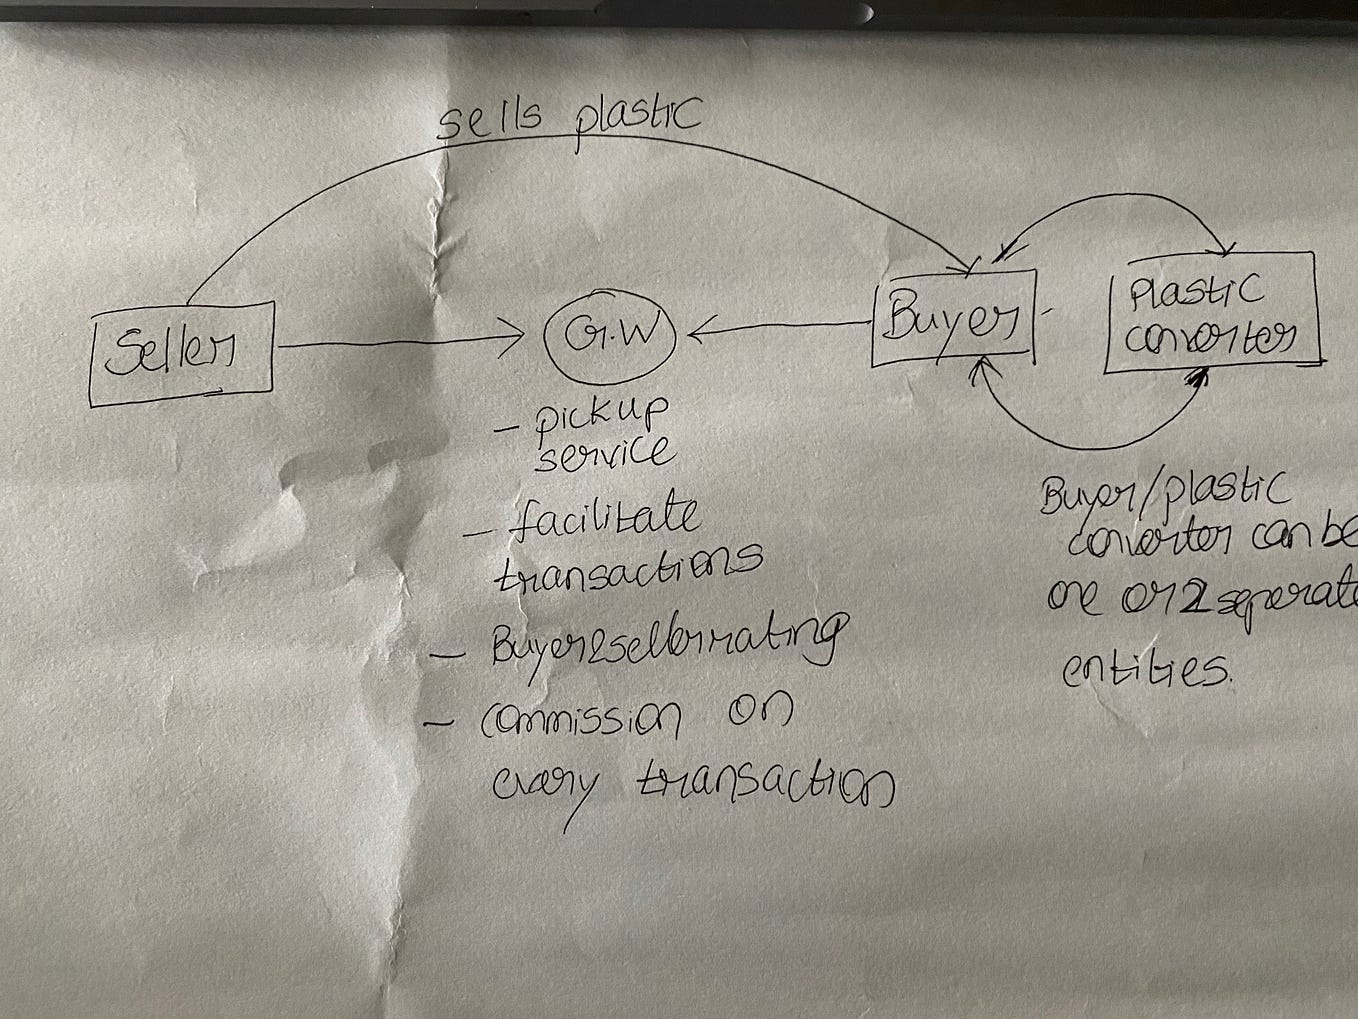 sells plastic
Seller
G.W
Buyer
Plastic
converter
- pickup
service
- facilitate
transactions
- Buyer2seller rating
- commission on
every transaction
Buyer/plastic
converter can be
one or 2 seperate
entities.